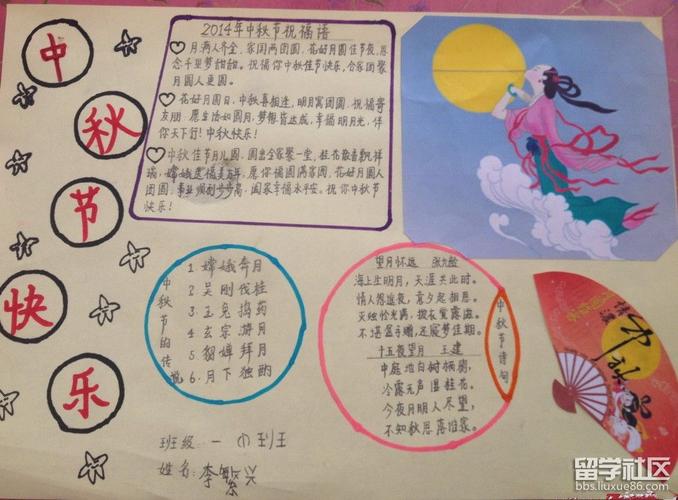 中
秋
节
快
乐
2014年中秋节祝福语
月两人齐全,家国两团圆,花好月圆佳节夜,思
念千里梦甜甜。祝福你中秋佳节快乐,合家团聚
月圆人更圆。
花好月圆日,中秋喜相连,明月寓团圆,祝福寄
友朋,愿生活如圆月,梦想皆达成,幸福明月光,伴
你天下行!中秋快乐!
中秋佳节月儿圆,圆出全家聚一堂,桂花散香彰祥
瑞,嫦娥送福美百年,愿你福圆满家圆,花好月圆人
团圆,事业顺利步步高,阖家幸福永平安。祝你中秋节
快乐!
中秋节的传说
1 嫦娥奔月
2 吴刚伐桂
3 玉兔捣药
4 玄宗游月
5 貂婵拜月
6.月下独酌
望月怀远 张九龄
海上生明月,天涯共此时。
情人怨遥夜,竟夕起相思。
灭烛怜光满,披衣觉露滋。
不堪盈手赠,还寝梦佳期。
十五夜望月 王建
中庭地白树栖鸦,
冷露无声湿桂花。
今夜月明人尽望,
不知秋思落谁家。
中秋节诗句
中秋
班级:一
姓名:李繁兴
留学社区
bbs.liuxue86.com